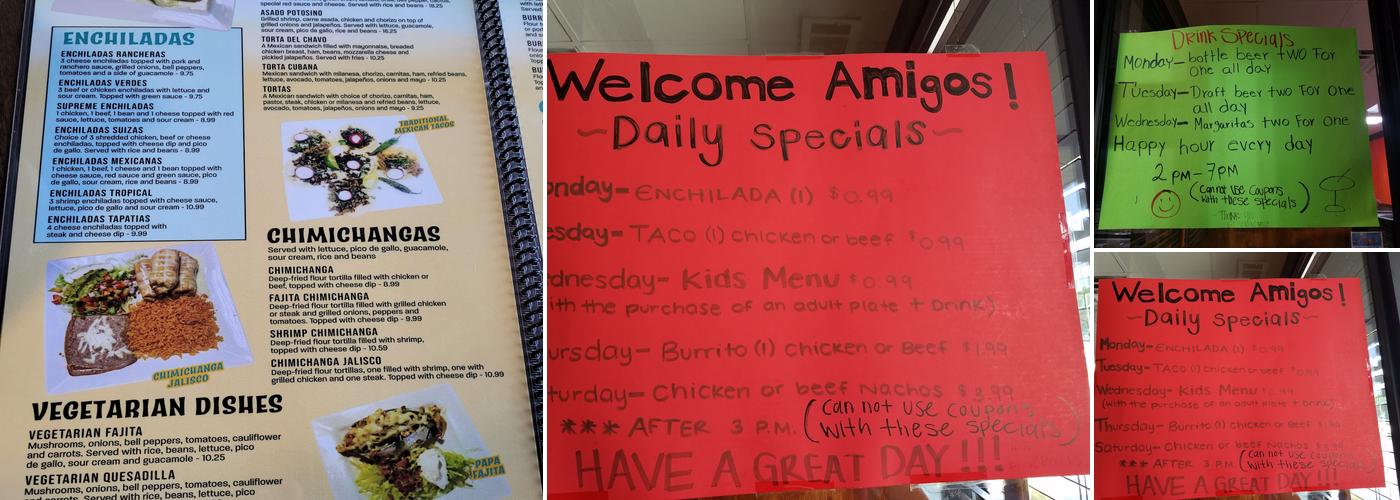 special red sauce and cheese. Served with rice and beans - 18.25
ASADO POTOSINO
Grilled shrimp, carne asada, chicken and chorizo on top of
grilled onions and jalapeños. Served with lettuce, guacamole,
sour cream, pico de gallo, rice and beans - 16.25
TORTA DEL CHAVO
A Mexican sandwich filled with mayonnaise, breaded
chicken breast, ham, beans, mozzarella cheese and
pickled jalapeños. Served with fries - 10.25
TORTA CUBANA
Mexican sandwich with milanesa, chorizo, carnitas, ham, refried beans,
lettuce, avocado, tomatoes, jalapeños, onions and mayo - 10.25
TORTAS
A Mexican sandwich with choice of chorizo, carnitas, ham,
pastor, steak, chicken or milanesa and refried beans, lettuce,
avocado, tomatoes, jalapeños, onions and mayo - 9.25
TRADITIONAL
MEXICAN TACOS
ENCHILADAS
ENCHILADAS RANCHERAS
3 cheese enchiladas topped with pork and
ranchero sauce, grilled onions, bell peppers,
tomatoes and a side of guacamole - 9.75
ENCHILADAS VERDES
3 beef or chicken enchiladas with lettuce and
sour cream. Topped with green sauce - 9.75
SUPREME ENCHILADAS
1 chicken, 1 beef, 1 bean and 1 cheese topped with red
sauce, lettuce, tomatoes and sour cream - 8.99
ENCHILADAS SUIZAS
Choice of 3 shredded chicken, beef or cheese
enchiladas, topped with cheese dip and pico
de gallo. Served with rice and beans - 8.99
ENCHILADAS MEXICANAS
1 chicken, 1 beef, 1 cheese and 1 bean topped with
cheese, red sauce and green sauce, pico
de gallo, sour cream, rice and beans - 8.99
ENCHILADAS TROPICAL
3 shrimp enchiladas topped with cheese sauce,
lettuce, pico de gallo and sour cream - 10.99
ENCHILADAS TAPATIAS
4 cheese enchiladas topped with
steak and cheese dip - 9.99
CHIMICHANGA
JALISCO
CHIMICHANGAS
Served with lettuce, pico de gallo, guacamole,
sour cream, rice and beans
CHIMICHANGA
Deep-fried flour tortilla filled with chicken or
beef, topped with cheese dip - 8.99
FAJITA CHIMICHANGA
Deep-fried flour tortilla filled with grilled chicken
or steak and grilled onions, peppers and
tomatoes. Topped with cheese dip - 9.99
SHRIMP CHIMICHANGA
Deep-fried flour tortilla filled with shrimp,
topped with cheese dip - 10.59
CHIMICHANGA JALISCO
Deep-fried flour tortillas, one filled with shrimp, one with
grilled chicken and one steak. Topped with cheese dip - 10.99
VEGETARIAN DISHES
VEGETARIAN FAJITA
Mushrooms, onions, bell peppers, tomatoes, cauliflower
and carrots. Served with rice, beans, lettuce, pico
de gallo, sour cream and guacamole - 10.25
VEGETARIAN QUESADILLA
Mushrooms, onions, bell peppers, tomatoes, cauliflower
and carrots. Served with rice, beans, lettuce, pico
PAPA
FAJITA
Welcome Amigos!
~Daily Specials~
onday- ENCHILADA (1) $0.99
esday- TACO (1) chicken or beef $0.99
dnesday- Kids Menu $0.99
ith the purchase of an adult plate + Drink)
ursday- Burrito (1) chicken or Beef $1.99
turday- Chicken or beef Nachos $3.99
*** AFTER 3 P.M. (Can not use coupons
with these specials)
HAVE A GREAT DAY!!!
Drink Specials
Monday- bottle beer two For
One all day
Tuesday- Draft beer two For one
all day
Wednesday- Margaritas two For One
Happy hour every day
2 PM- 7PM
(Cannot use Coupons
with these specials)
Welcome Amigos!
~Daily Specials~
Monday- ENCHILADA (1) $0.99
Tuesday- TACO (1) chicken or beef $0.99
Wednesday- Kids Menu $0.99
(with the purchase of an adult plate + Drink)
Thursday- Burrito (1) chicken or Beef $1.99
Saturday- Chicken or beef Nachos
*** AFTER 3 P.M. (Can not use coupons
with these specials)
HAVE A GREAT DAY!!!